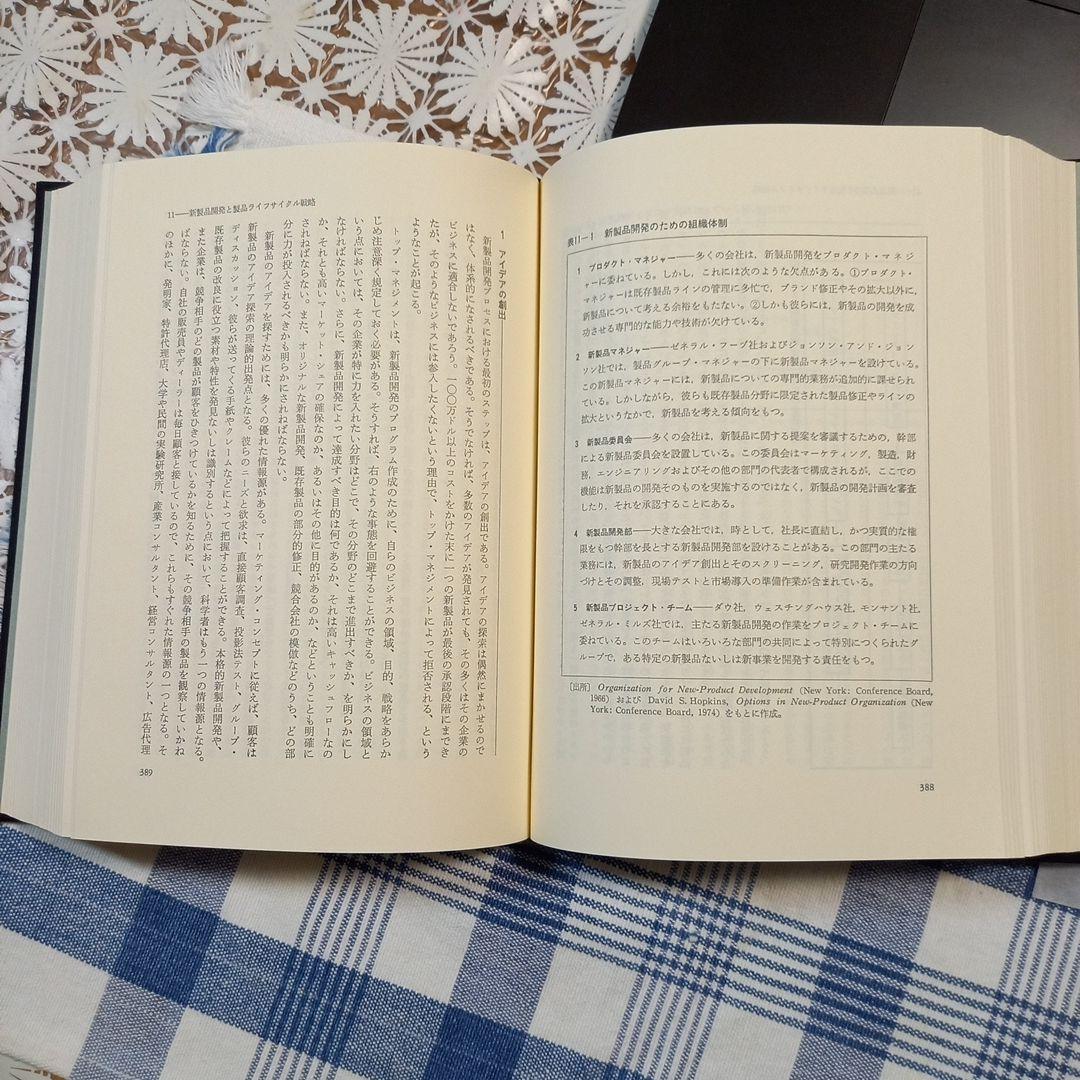 表11―1　新製品開発のための組織体制
1　プロダクト・マネジャー――多くの会社は，新製品開発をプロダクト・マネジ
ャーに委ねている。しかし，これには次のような欠点がある。①プロダクト・
マネジャーは既存製品ラインの管理に多忙で，ブランド修正やその拡大以外に，
新製品について考える余裕をもたない。②しかも彼らには，新製品の開発を成
功させる専門的な能力や技術が欠けている。
2　新製品マネジャー――ゼネラル・フーヅ社およびジョンソン・アンド・ジョン
ソン社では，製品グループ・マネジャーの下に新製品マネジャーを設けている。
この新製品マネジャーには，新製品についての専門的業務が追加的に課せられ
ている。しかしながら，彼らも既存製品分野に限定された製品修正やラインの
拡大というなかで，新製品を考える傾向をもつ。
3　新製品委員会――多くの会社は，新製品に関する提案を審議するための，幹部
による新製品委員会を設置している。この委員会はマーケティング，製造，財
務，エンジニアリングおよびその他の部門の代表者で構成されるが，ここでの
機能は新製品の開発そのものを実施するのではなく，新製品の開発計画を審査
したり，それを承認することにある。
4　新製品開発部――大きな会社では，時として，社長に直結し，かつ実質的な権
限をもつ幹部を長とする新製品開発部を設けることがある。この部門の主たる
業務には，新製品のアイデア創出とそのスクリーニング，研究開発作業の方向
づけとその調整，現場テストと市場導入の準備作業が含まれている。
5　新製品プロジェクト・チーム――ダウ社，ウェスチングハウス社，モンサント社，
ゼネラル・ミルズ社では，主たる新製品開発の作業をプロジェクト・チームに
委ねている。このチームはいろいろな部門の共同によって特別につくられたグ
ループで，ある特定の新製品ないしは新事業を開発する責任をもつ。
〔出所〕 Organization for New-Product Development (New York: Conference Board,
1966) および David S. Hopkins, Options in New-Product Organization (New
York: Conference Board, 1974) をもとに作成。
388
11――新製品開発と製品ライフサイクル戦略
1　アイデアの創出
新製品開発プロセスにおける最初のステップは、アイデアの創出である。アイデアの探索は偶然にまかせるので
はなく、体系的になされるべきである。そうでなければ、多数のアイデアが発見されても、その多くはその企業の
ビジネスに適合しないであろう。一〇〇万ドル以上のコストをかけた末に一つの新製品が最後の承認段階にまでき
たが、そのようなビジネスには参入したくないという理由で、トップ・マネジメントによって拒否される、という
ようなことが起こる。
トップ・マネジメントは、新製品開発のプログラム作成のために、自らのビジネスの領域、目的、戦略をあらか
じめ注意深く規定しておく必要がある。そうすれば、右のような事態を回避することができる。ビジネスの領域と
いう点においては、その企業が特に力を入れたい分野はどこで、その分野のどこまで進出すべきか、を明らかにし
なければならない。さらに、新製品開発によって達成すべき目的は何であるか、それは高いキャッシュフローなの
か、それとも高いマーケット・シェアの確保なのか、あるいはその他に目的があるのか、などということも明確に
されねばならない。また、オリジナルな新製品開発、既存製品の部分的修正、競合会社の模倣などのうち、どの部
分に力が投入されるべきかも明らかにされねばならない。
新製品のアイデアを探すためには、多くの優れた情報源がある。マーケティング・コンセプトに従えば、顧客は
新製品のアイデア探索の理論的出発点となる。彼らのニーズと欲求は、直接顧客調査、投影法テスト、グループ・
ディスカッション、彼らが送ってくる手紙やクレームなどによって把握することができる。本格的新製品開発や、
既存製品の改良に役立つ素材や特性を発見ないしは識別するという点において、科学者はもう一つの情報源となる。
また企業は、競争相手のどの製品が顧客をひきつけているかを知るために、その競争相手の製品を観察していかね
ばならない。自社の販売員やディーラーは毎日顧客と接しているので、これらもすぐれた情報源の一つとなる。そ
のほかに、発明家、特許代理店、大学や民間の実験研究所、産業コンサルタント、経営コンサルタント、広告代理
389